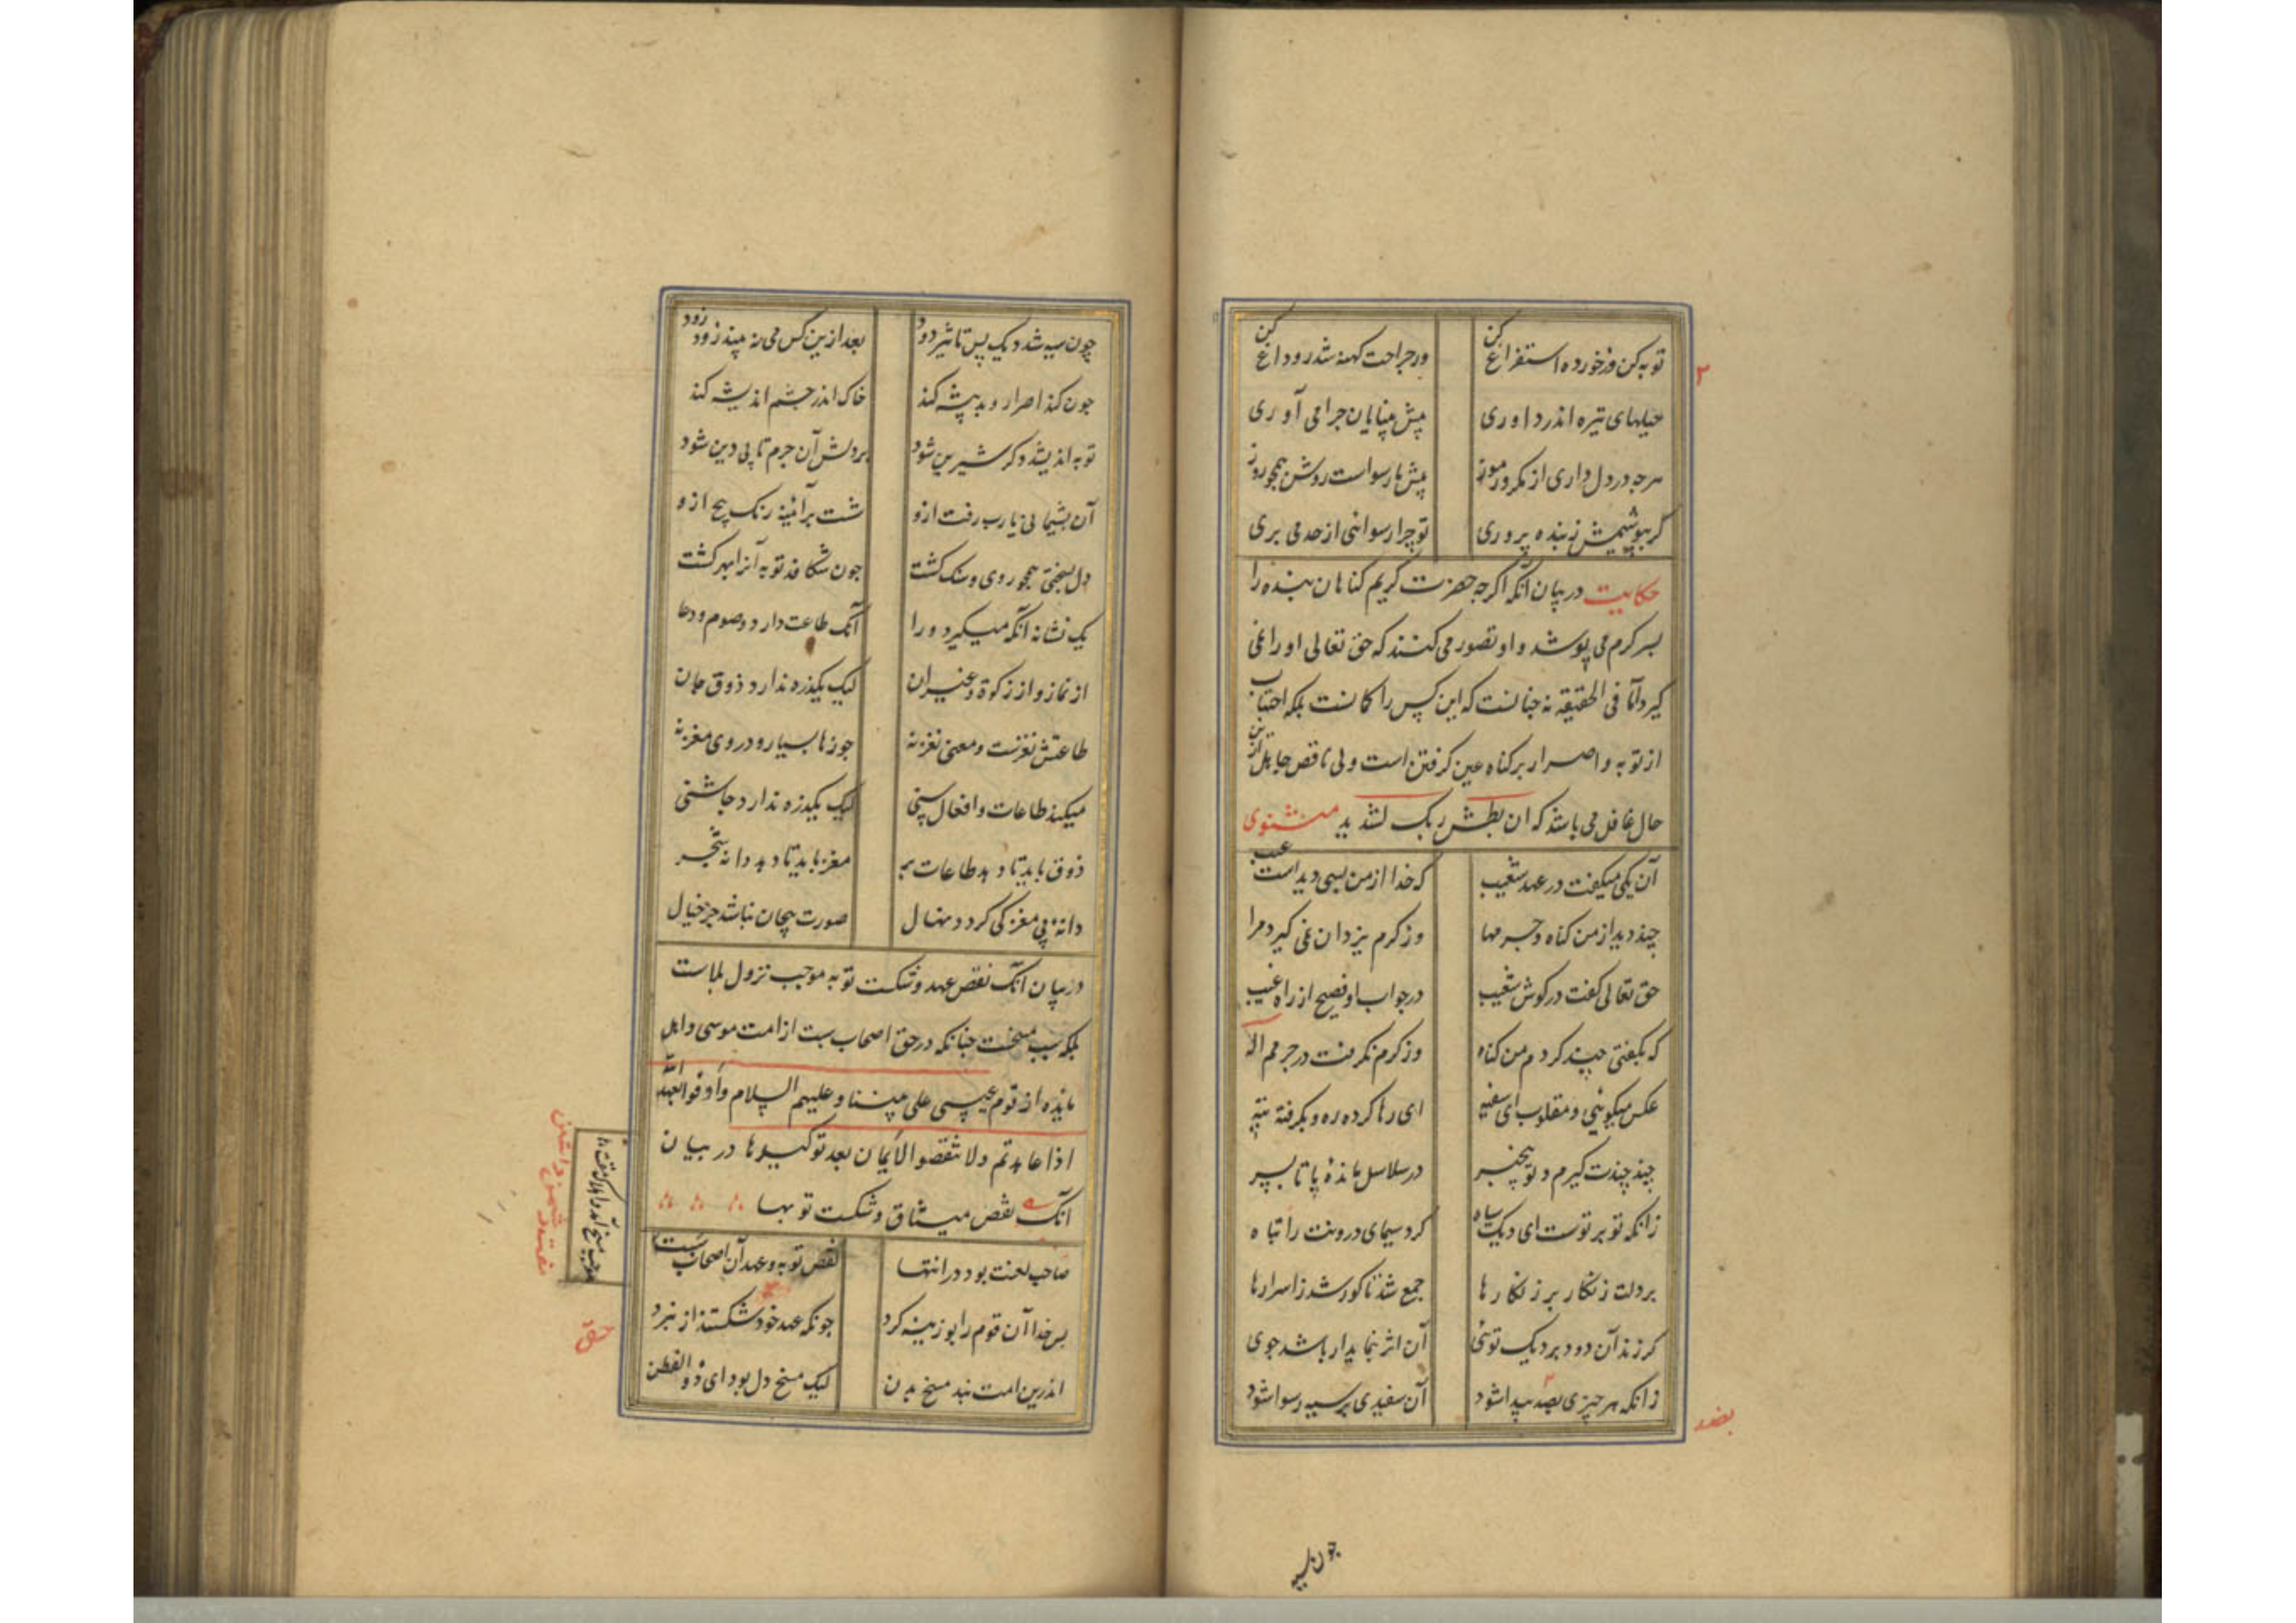 توبه کن وز خورده استفراغ کن ور جراحت کهنه شد رو داغ کن
حیلهای تیره اندر داوری پیش بینایان چرا می آوری
هرچه در دل داری از مکر و رموز پیش ما رسواست روشن همچو روز
گر بپوشیمش ز بنده پروری تو چرا رسوائی از حد می بری
حکایت در بیان آنکه اگرچه حضرت کریم کناهان بنده را
بسر کرم می پوشد و او تصور می کند که حق تعالی او را نمی
کیرد اما فی الحقیقه نه چنانست که این کس را کمانست بلکه اجتناب
از توبه و اصرار بر کناه عین کرفتن است ولی ناقص جاهل از این
حال غافل می باشد که ان بطش ربک لشدید مثنوی
آن یکی میکفت در عهد شعیب که خدا از من بسی دیداست عیب
چند دید از من کناه و جرمها وز کرم یزدان نمی کیرد مرا
حق تعالی کفت در کوش شعیب در جواب او فصیح از راه غیب
که بکفتی چند کردم من کناه وز کرم نکرفت در جرمم اله
عکس میکوئی و مقلوب ای سفیه ای رها کرده ره و بکرفته تیه
چند چندت کیرم و تو بیخبر در سلاسل مانده پا تا بسر
زانکه تو بر توست ای دیک سیاه کرد سیمای درونت را تباه
بر دلت زنکار بر زنکارها جمع شد تا کور شد ز اسرارها
کر زند آن دود بر دیک نوی آن اثر بنماید ار باشد جوی
زانکه هر چیزی بضد پیدا شود آن سفیدی بر سیه رسوا شود
۲
بضد
چون سیه
چون سیه شد دیک پس تاثیر دود بعد ازین کس می نه بیند زود زود
چون کند اصرار و بد پیشه کند خاک اندر چشم اندیشه کند
توبه اندیشد دکر شیرین شود بر دلش آن جرم تا بی دین شود
آن پشیمانی و یارب رفت ازو شست بر آئینه رنک پنج ازو
چون شکافد توبه آنرا بهر کشت
یک نشانه آنکه میکیرد ورا آنک طاعت دارد و صوم و دعا
از نماز و از زکوة و غیر آن لیک یکذره ندارد ذوق جان
طاعتش نغزست و معنی نغز نه جوزها بسیار و در وی مغز نه
میکند طاعات و افعال سنی لیک یکذره ندارد چاشنی
ذوق باید تا دهد طاعات بر مغز باید تا دهد دانه شجر
دانهٔ بی مغز کی کردد نهال صورت بیجان نباشد جز خیال
در بیان آنک نقض عهد و شکست توبه موجب نزول بلاست
بلکه سبب مسخست چنانکه در حق اصحاب سبت از امت موسی و اهل
مایده از قوم عیسی علی نبینا و علیهم السلام و اوفوا بعهد الله
اذا عاهدتم ولا تنقضوا الایمان بعد توکیدها در بیان
آنک نقض میثاق و شکست توبها
صاحب لعنت بود در انتها نقض توبه و عهد آن اصحاب سبت
پس خدا آن قوم را بوزینه کرد چونکه عهد خود شکستند از نبرد
اندرین امت نبد مسخ بدن لیک مسخ دل بود ای ذو الفطن
موجب مسخ آمد و اهلاک و مقت
حق